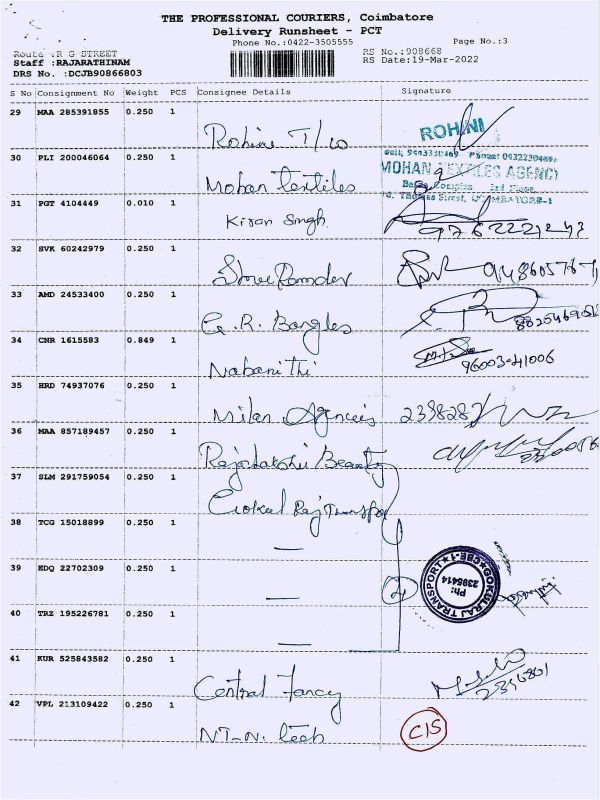 THE PROFESSIONAL COURIERS, Coimbatore
Delivery Runsheet - PCT
Phone No.:0422-3505555 Page No.:3
Route :R G STREET RS No.:908668
Staff :RAJARATHINAM RS Date:19-Mar-2022
DRS No. :DCJB90866803
S No Consignment No Weight PCS Consignee Details Signature
29 MAA 285391855 0.250 1
Rohini T/co ROHINI
30 PLI 200046064 0.250 1
Mohan Textiles MOHAN TEXTILES AGENCY
31 PGT 4104449 0.010 1
Kiran Singh
32 SVK 60242979 0.250 1
Shree Ramdev
33 AMD 24533400 0.250 1
G.R. Bangles
34 CNR 1615583 0.849 1
Nabanithi 96003-41006
35 HRD 74937076 0.250 1
Milan Agencies 239828
36 MAA 857189457 0.250 1
Rajalakshi Beauty
37 SLM 291759054 0.250 1
Gokul Raj Transpor
38 TCG 15018899 0.250 1
—
39 EDQ 22702309 0.250 1
— 4 GOKULRAJ TRANSPORT CBE-1 Ph: 2395414
40 TRZ 195226781 0.250 1
—
41 KUR 525843582 0.250 1
Central Fancy
42 VPL 213109422 0.250 1
NT-N. CIS